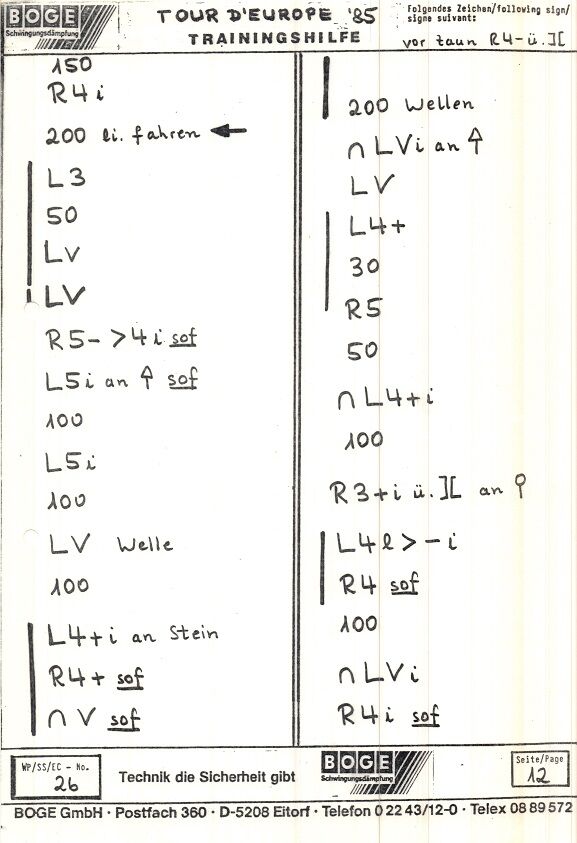 BOGE
Schwingungsdämpfung
TOUR D'EUROPE '85
TRAININGSHILFE
Folgendes Zeichen/following sign/
signe suivant:
vor zaun R4-ü.][
150
R4i
200 li. fahren ←
L3
50
Lv
i LV
R5- >4i sof
L5i an ↑ sof
100
L5i
100
LV Welle
100
L4+i an Stein
R4+ sof
∩ V sof
200 Wellen
∩ LVi an ↑
LV
L4+
30
R5
50
∩ L4+i
100
R3+i ü.][ an
L4l>-i
R4 sof
100
∩ LVi
R4i sof
WP/SS/EC - No.
26
Technik die Sicherheit gibt
BOGE
Schwingungsdämpfung
Seite/Page
12
BOGE GmbH · Postfach 360 · D-5208 Eitorf · Telefon 0 22 43/12-0 · Telex 08 89 572